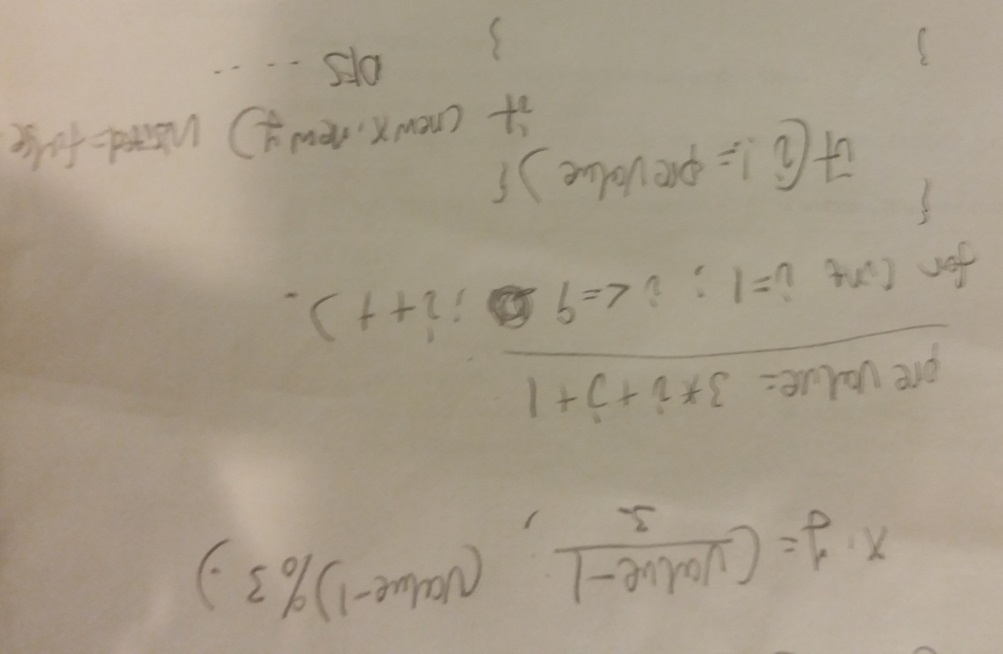 x.y = (value-1 / 3, (value-1)%3.)
pre value= 3*i+j+1
for (int i=1; i<=9 ; i++).
{
if (i != prevalue) {
if (newx.newy) visited=false
DFS ....
} }